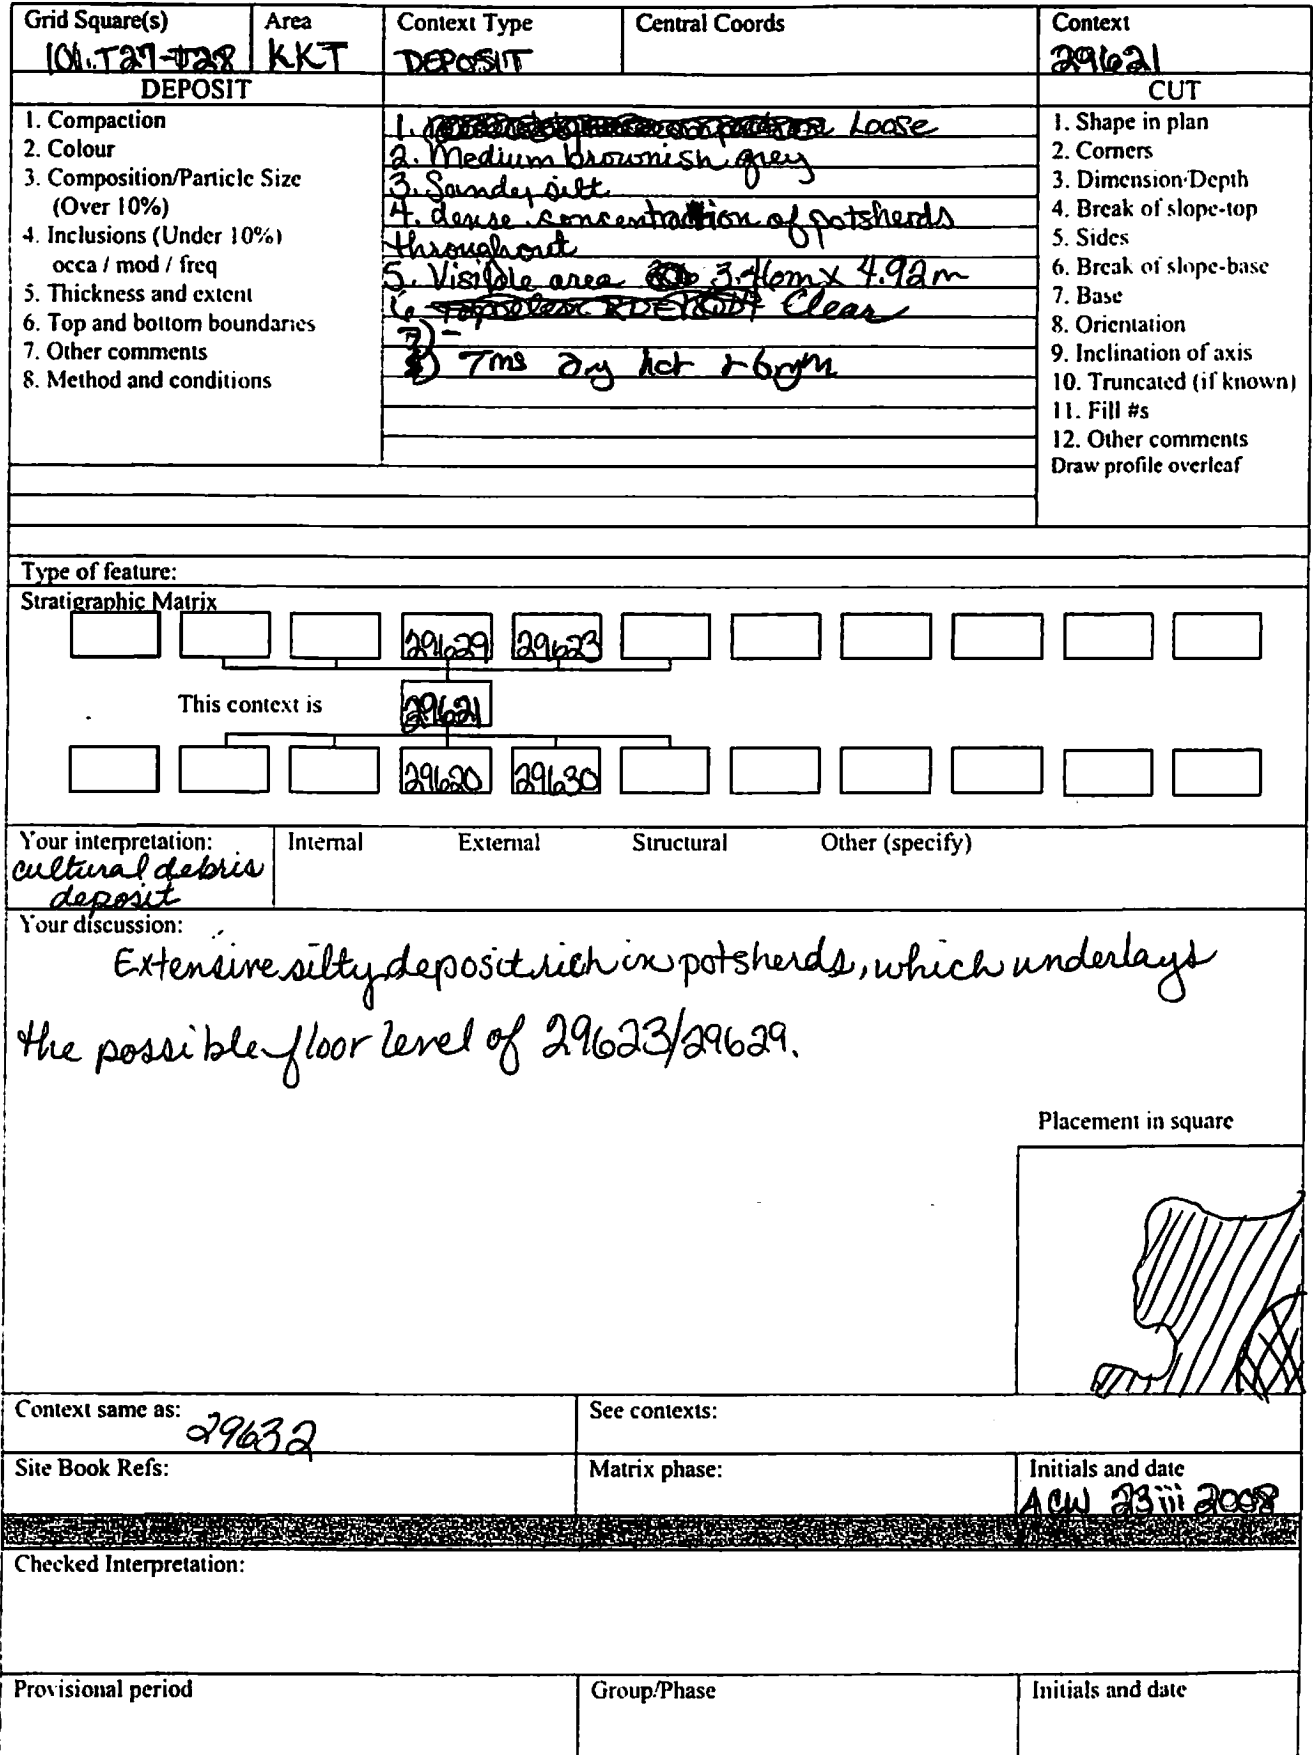 Grid Square(s) Area Context Type Central Coords Context
101.T27-T28 KKT DEPOSIT 29621
DEPOSIT CUT
1. Compaction
2. Colour
3. Composition/Particle Size
(Over 10%)
4. Inclusions (Under 10%)
occa / mod / freq
5. Thickness and extent
6. Top and bottom boundaries
7. Other comments
8. Method and conditions
1. Loose
2. Medium brownish grey
3. Sandy silt
4. dense concentration of potsherds
throughout
5. Visible area 3.46m x 4.92m
6. Clear
7) -
8) Tms dry hot
1. Shape in plan
2. Corners
3. Dimension/Depth
4. Break of slope-top
5. Sides
6. Break of slope-base
7. Base
8. Orientation
9. Inclination of axis
10. Truncated (if known)
11. Fill #s
12. Other comments
Draw profile overleaf
Type of feature:
Stratigraphic Matrix
29629 29623
This context is 29621
29620 29630
Your interpretation: Internal External Structural Other (specify)
cultural debris
deposit
Your discussion:
Extensive silty deposit rich in potsherds, which underlays
the possible floor level of 29623/29629.
Placement in square
Context same as: 29632 See contexts:
Site Book Refs: Matrix phase: Initials and date
ACW 23 iii 2008
Checked Interpretation:
Provisional period Group/Phase Initials and date